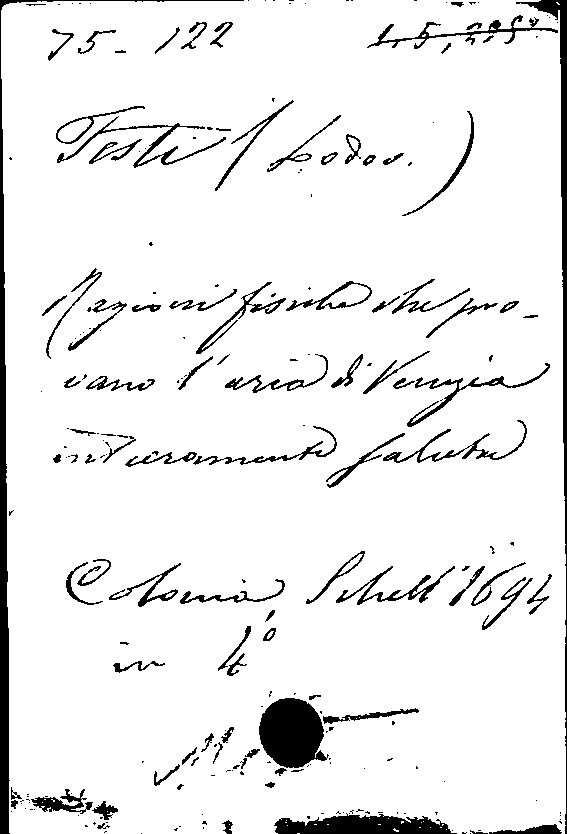 75-122
Testi (Lodov.)
Ragioni fisiche che pro-
vano l'aria di Venezia
intieramente salubre
Colonia, Schell 1694
in 4º